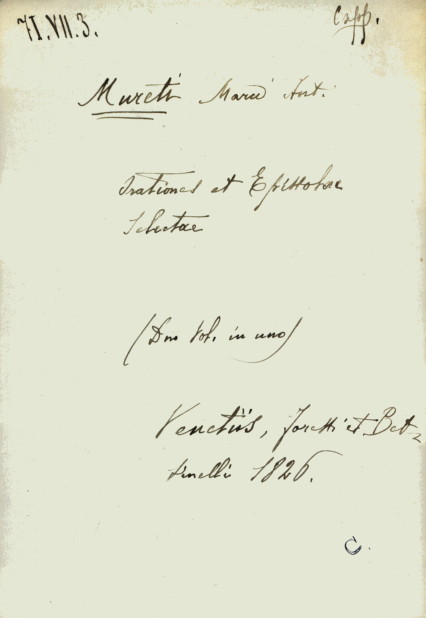 71.VII.3.
Capp.
Mureti Marci Ant.
Orationes et Epistolae
Selectae
(Duo Vol. in uno)
Venetiis, Foresti et Bet-
tinelli 1826.
C.